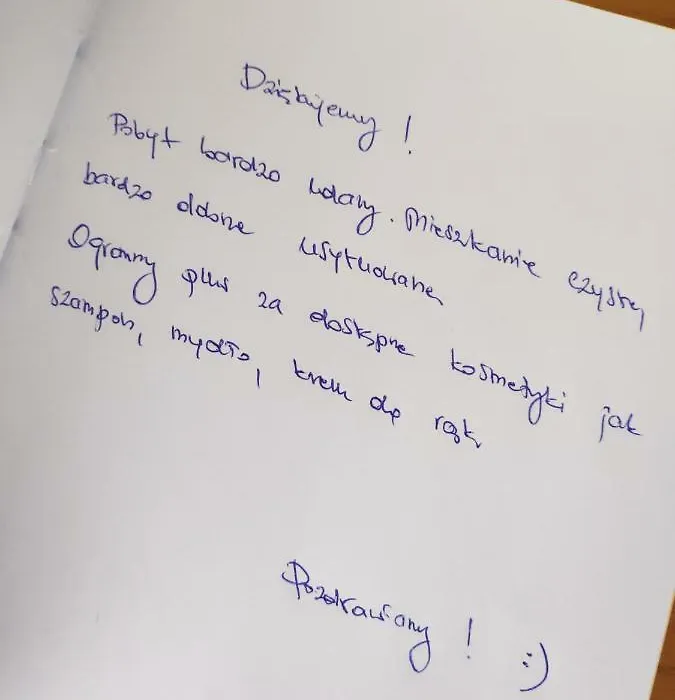 Dziękujemy!
Pobyt bardzo udany. Mieszkanie czyste,
bardzo dobrze usytuowane,
Ogromny plus za dostępne kosmetyki jak
szampon, mydło, krem do rąk
Pozdrawiamy! :)